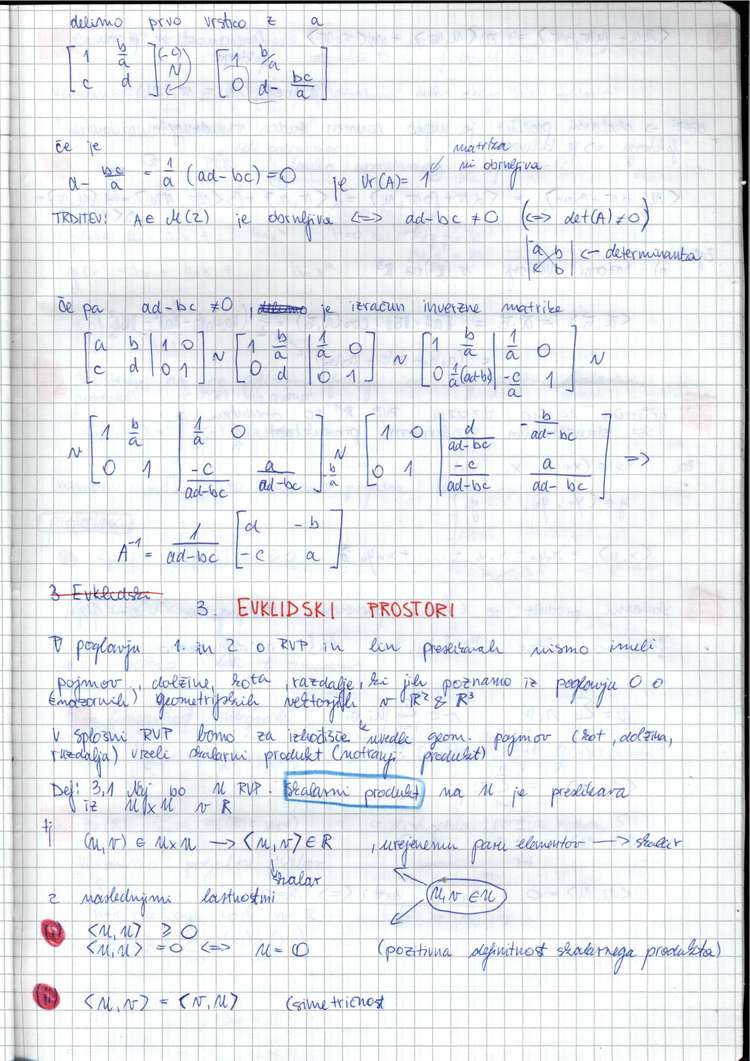 delimo prvo vrstico z a
[1 b/a; c d] (-c) ~ [1 b/a; 0 d- bc/a]
če je
d- bc/a = 1/a (ad-bc) = 0 je Vr(A)= 1 ← matrika ni obrnljiva
TRDITEV: A∈ M(2) je obrnljiva <=> ad-bc ≠ 0 (<=> det(A) ≠ 0)
|a b| ← determinanta
Če pa ad-bc ≠ 0, je izračun inverzne matrike
[a b | 1 0; c d | 0 1] ~ [1 b/a | 1/a 0; 0 d | 0 1] ~ [1 b/a | 1/a 0; 0 1/a(ad-b) | -c/a 1] ~
~ [1 b/a | 1/a 0; 0 1 | -c/ad-bc a/ad-bc] b/a ~ [1 0 | d/ad-bc -b/ad-bc; 0 1 | -c/ad-bc a/ad-bc] =>
A⁻¹ = 1/ad-bc [d -b; -c a]
3 Evklidski
3. EVKLIDSKI PROSTORI
V poglavju 1. in 2 o RVP in lin preslikavah nismo imeli
pojmov, dolžine, kota, razdalje, ki jih poznamo iz poglavja 0 o
(nazornih) geometrijskih vektorjih v R² & R³
V splošni RVP bomo za izhodišče uvedli geom. pojmov (kot, dolžina,
razdalja) vzeli skalarni produkt (notranji produkt)
Def: 3,1 Naj bo U RVP. Skalarni produkt na U je preslikava
iz U×U v R
tj (u,v) ∈ U×U → <u,v> ∈ R, urejenemu paru elementov → skalar
skalar
z naslednjimi lastnostmi
u,v ∈ U
(i) <u,u> ≥ 0
<u,u> = 0 <=> u = 0 (pozitivna definitnost skalarnega produkta)
(ii) <u,v> = <v,u> (simetričnost